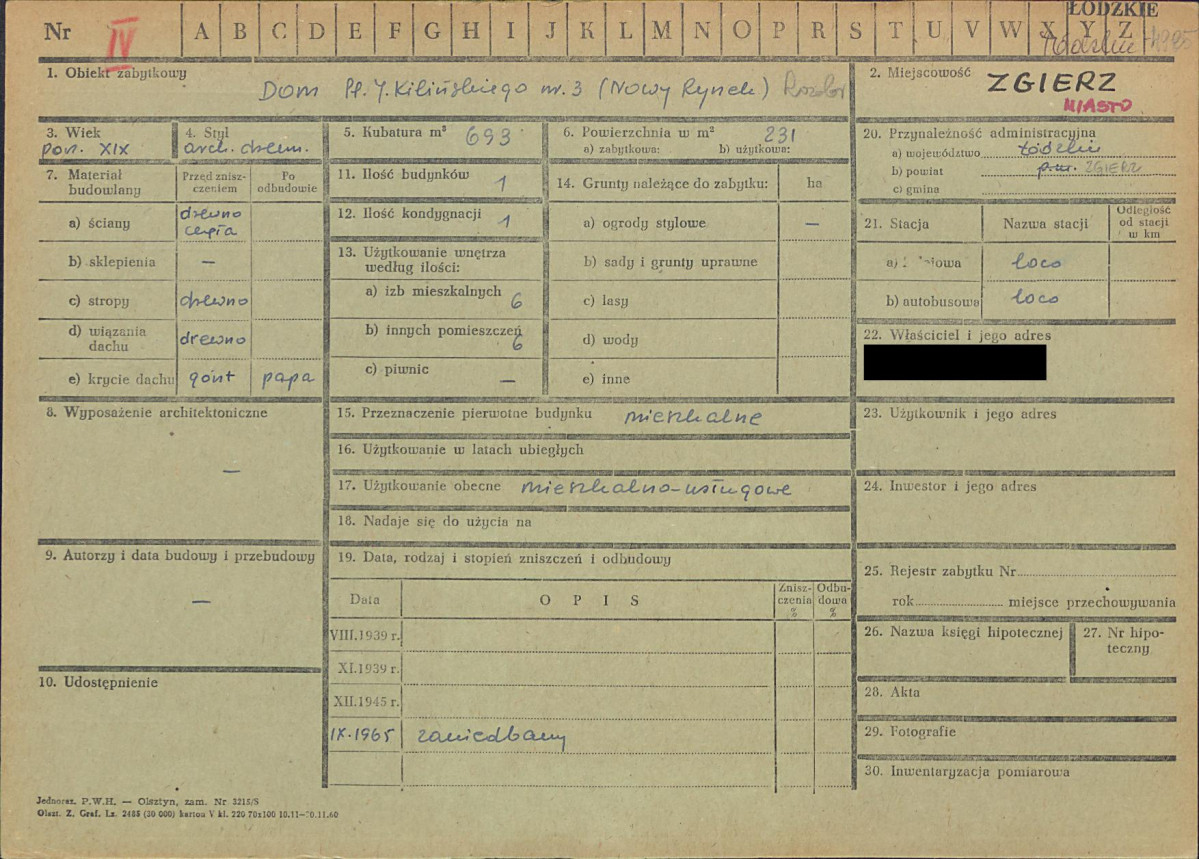 Nr IV A B C D E F G H I J K L M N O P R S T U V W X Y Z
ŁÓDZKIE
1. Obiekt zabytkowy
Dom Pl. J. Kilińskiego nr. 3 (Nowy Rynek)
2. Miejscowość ZGIERZ
MIASTO
3. Wiek
poł. XIX
4. Styl
arch. drewn.
5. Kubatura m³ 693
6. Powierzchnia w m² 231
a) zabytkowa: b) użytkowa:
7. Materiał budowlany
Przed zniszczeniem
Po odbudowie
a) ściany drewno
cegła
b) sklepienia —
c) stropy drewno
d) wiązania dachu drewno
e) krycie dachu gont papa
8. Wyposażenie architektoniczne
—
9. Autorzy i data budowy i przebudowy
—
10. Udostępnienie
11. Ilość budynków 1
12. Ilość kondygnacji 1
13. Użytkowanie wnętrza
według ilości:
a) izb mieszkalnych 6
b) innych pomieszczeń 6
c) piwnic —
14. Grunty należące do zabytku: ha
a) ogrody stylowe —
b) sady i grunty uprawne
c) lasy
d) wody
e) inne
15. Przeznaczenie pierwotne budynku mieszkalne
16. Użytkowanie w latach ubiegłych
17. Użytkowanie obecne mieszkalno-usługowe
18. Nadaje się do użycia na
19. Data, rodzaj i stopień zniszczeń i odbudowy
Data OPIS Zniszczenia % Odbudowa %
VIII.1939 r.
XI.1939 r.
XII.1945 r.
IX.1965 zaniedbany
20. Przynależność administracyjna
a) województwo łódzkie
b) powiat ZGIERZ
c) gmina
21. Stacja Nazwa stacji Odległość od stacji w km
a) loco
b) autobusowa loco
22. Właściciel i jego adres
23. Użytkownik i jego adres
24. Inwestor i jego adres
25. Rejestr zabytku Nr
rok miejsce przechowywania
26. Nazwa księgi hipotecznej
27. Nr hipoteczny
28. Akta
29. Fotografie
30. Inwentaryzacja pomiarowa
Jednoraz. P.W.H. — Olsztyn, zam. Nr 3215/S
Olszt. Z. Graf. Lz. 2485 (30 000) karton V kl. 220 70x100 10.11—30.11.60